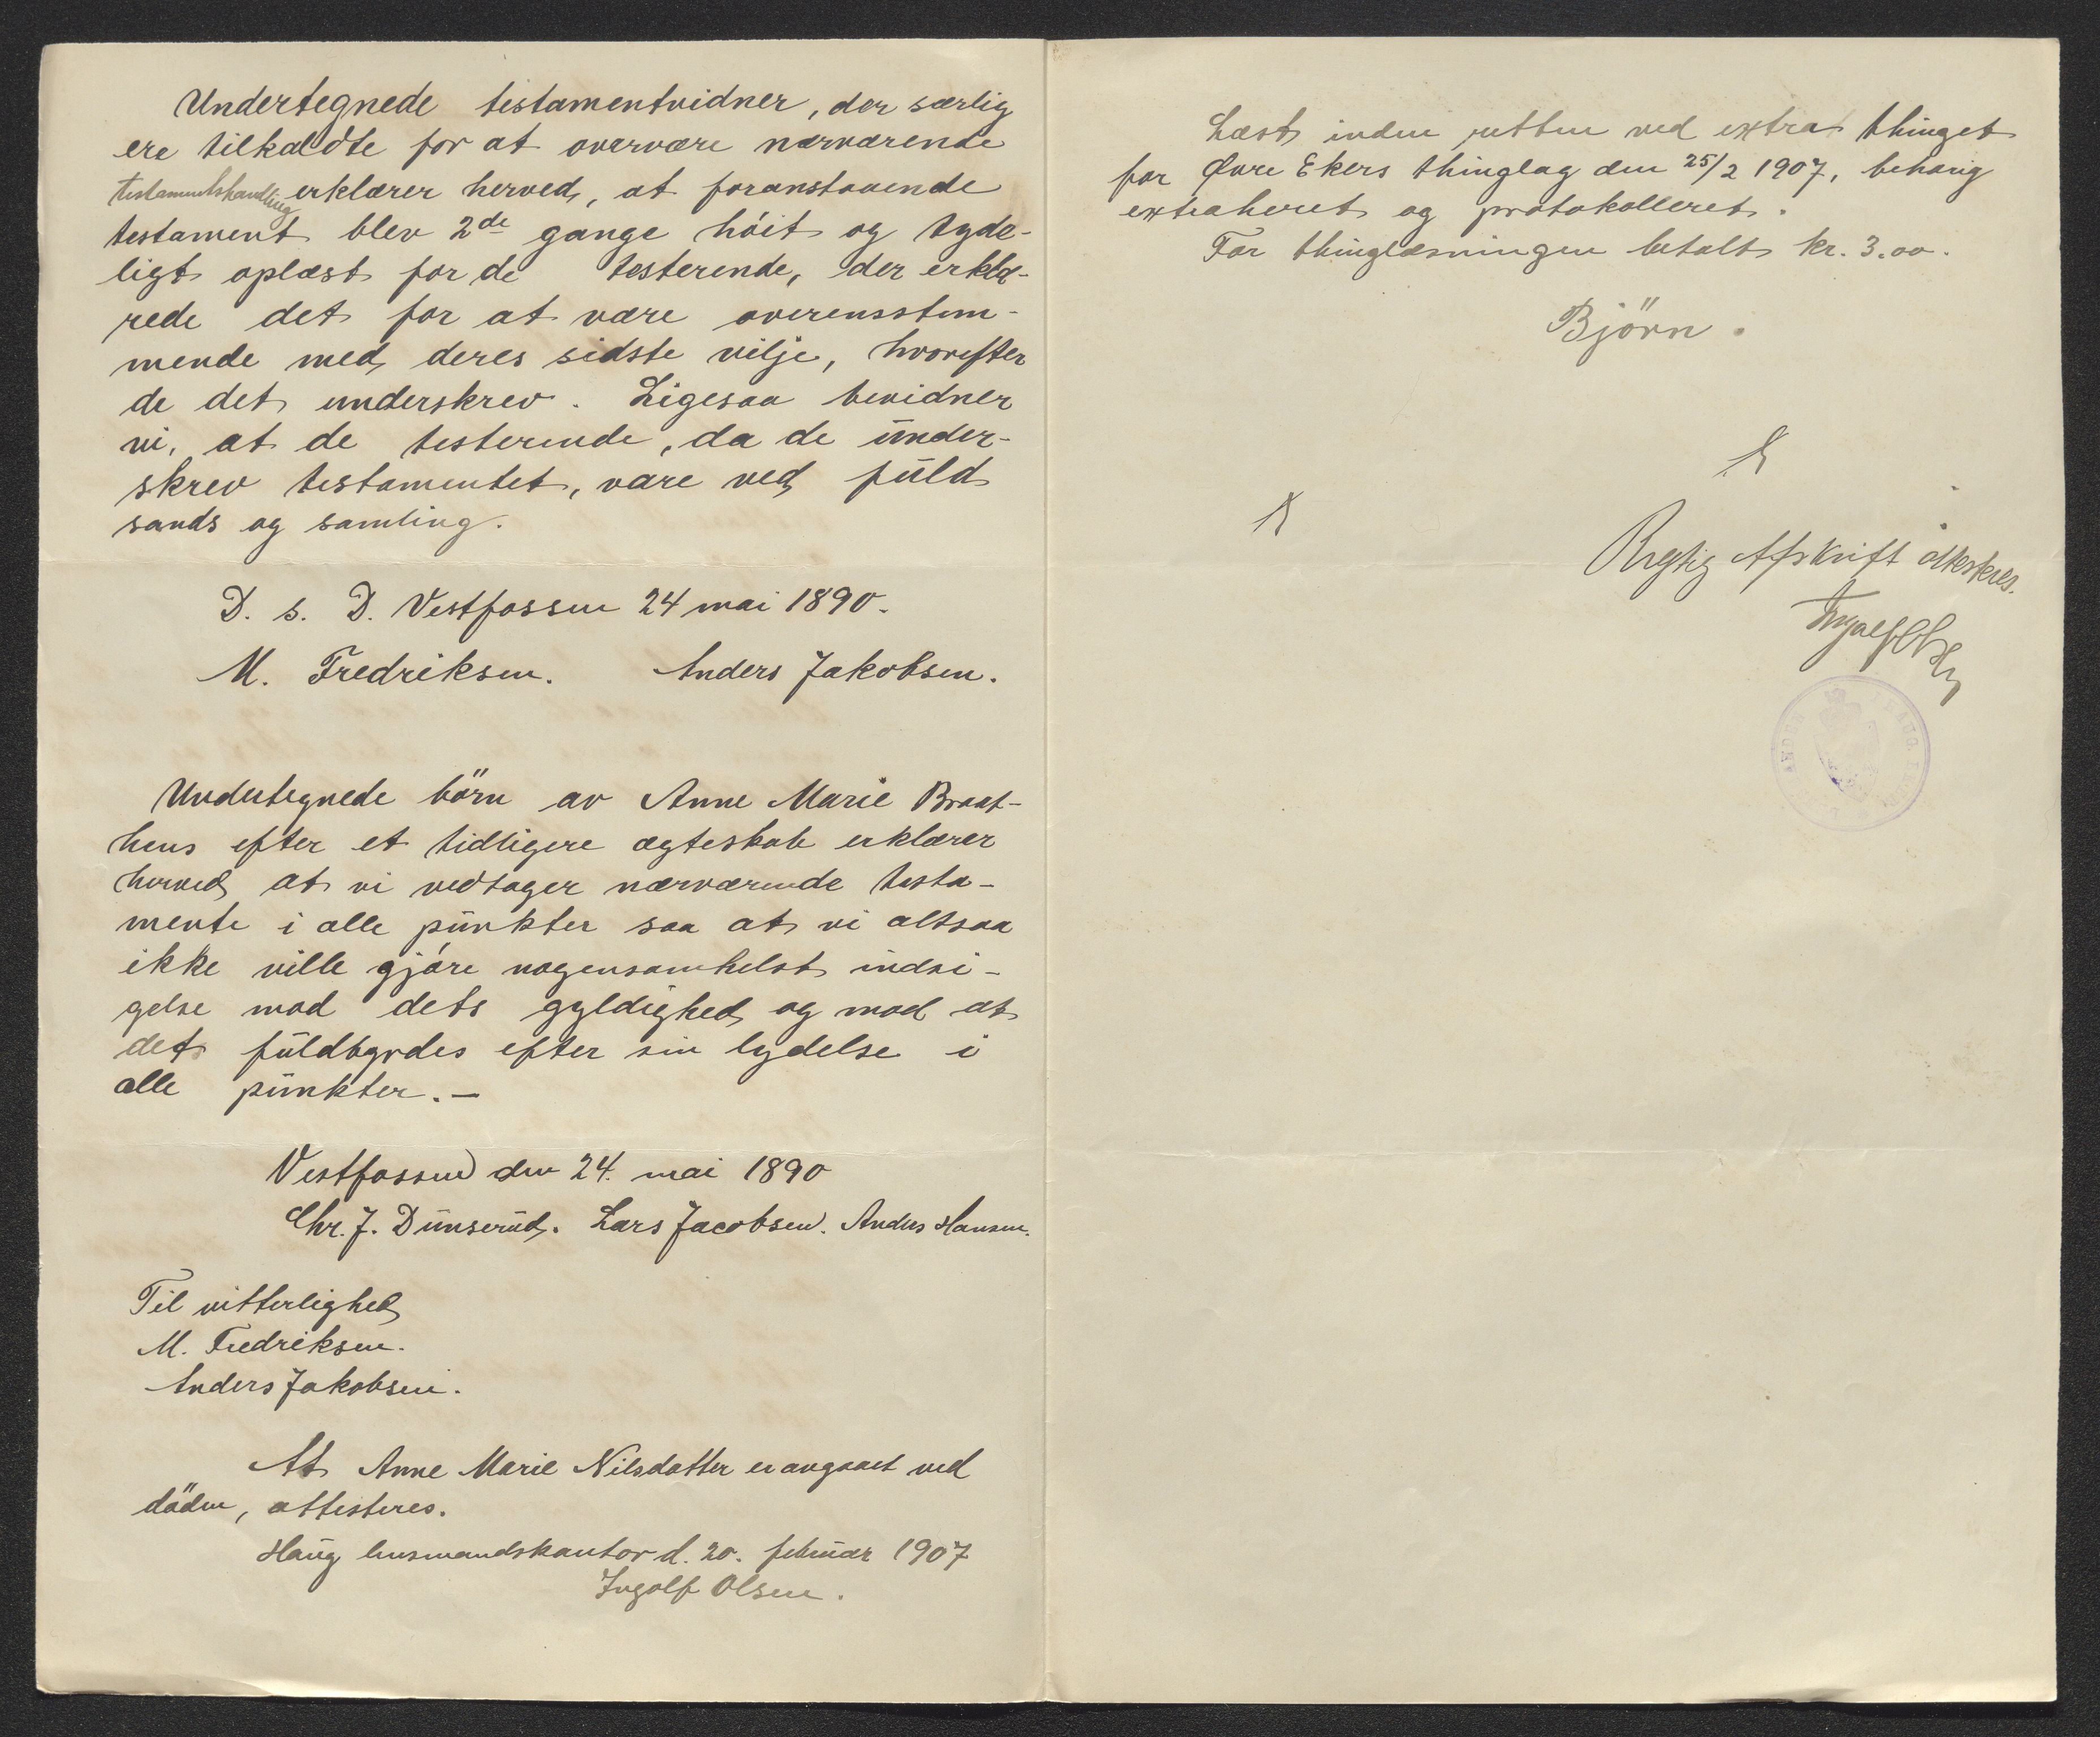 Undertegnede testamentvidner, der særlig
ere tilkaldte for at overvære nærværende
testamentshandling erklærer herved, at foranstaaende
testament blev 2de gange höit og tyde-
ligt oplæst for de testerende, der erklæ-
rede det for at være overensstem-
mende med deres sidste vilje, hvorefter
de det underskrev. Ligesaa bevidner
vi, at de testerende, da de under-
skrev testamentet, vare ved fuld
sands og samling.
D. s. D. Vestfossen 24 mai 1890.
M. Fredriksen. Anders Jakobsen.
Undertegnede börn av Anne Marie Braat-
hens efter et tidligere ægteskab erklærer
herved at vi vedtager nærværende testa-
mente i alle punkter saa at vi altsaa
ikke ville gjöre nogensomhelst indsi-
gelse mod dets gyldighed og mod at
det fuldbyrdes efter sin lydelse i
alle punkter.—
Vestfossen den 24. mai 1890
Chr. J. Dunserud. Lars Jacobsen. Anders Hansen.
Til vitterlighed
M. Fredriksen.
Anders Jakobsen.
At Anne Marie Nilsdatter er avgaaet ved
döden, attesteres.
Haug lensmandskontor d. 20. februar 1907
Ingolf Olsen.
Læst inden retten ved extrathinget
for Övre Ekers thinglag den 25/2 1907, behörig
extraheret og protokolleret.
For thinglæsningen betalt kr. 3.00.
Björn.
Rigtig Afskrift attesteres.